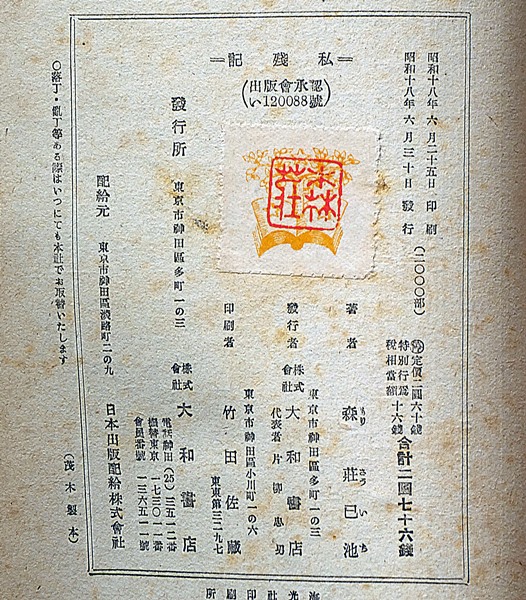 昭和十八年六月二十五日 印刷
昭和十八年六月三十日 發行
(二〇〇〇部)
㊞定價二圓六十錢
特別行爲税相當額 十六錢
合計二圓七十六錢
═私殘記═
(出版會承認い120088號)
著者 森莊已池
もり さう いち
發行者 東京市神田區多町一の三
株式會社 大和書店
代表者 片柳忠男
印刷者 東京市神田區小川町一の六
竹田佐藏
東東第三二九七
發行所 東京市神田區多町一の三
株式會社 大和書店
電話神田(25)三五一二番
振替東京一七三〇一番
會員番號一三六五一一號
配給元 東京市神田區淡路町二の九
日本出版配給株式會社
〇落丁・亂丁等ある際はいつにても本社でお取替いたします
(茂木製本)